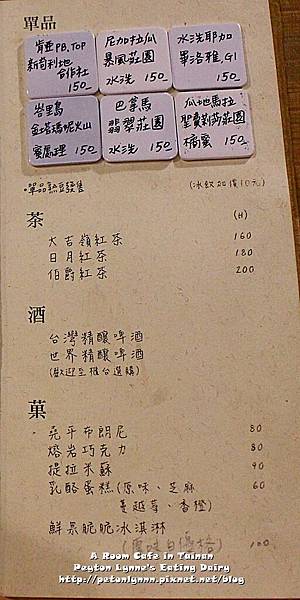 單品
肯亞 P.B, TOP
新荀利地
合作社
150
尼加拉瓜
暴風莊園
水洗 150
水洗耶加
畢洛雅.G1
150
峇里島
金塔瑪妮火山
蜜處理 150
巴拿馬
翡翠莊園
水洗 150
瓜地馬拉
聖費莉莎莊園
橘蜜 150
·單品熟豆零售 (冰飲加價10元)
茶 (H)
大吉嶺紅茶 160
日月紅茶 180
伯爵紅茶 200
酒
台灣精釀啤酒
世界精釀啤酒
(歡迎至櫃台選購)
菓
堯平布朗尼 80
熔岩巧克力 80
提拉米蘇 90
乳酪蛋糕(原味、芝麻 60
蔓越莓、香橙)
鮮果脆脆冰淇淋
100
A Room Cafe in Tainan
Peyton Lynne's Eating Dairy
http://petonlynnn.pixnet.net/blog